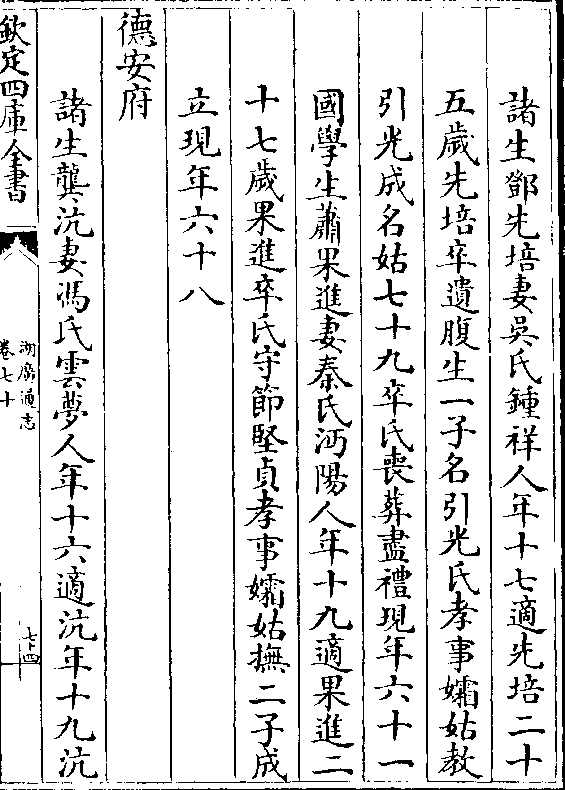 諸生鄧先培妻吳氏鍾祥人年十七適先培二十
五歲先培卒遺腹生一子名引光氏孝事孀姑教
引光成名姑七十九卒氏喪葬盡禮現年六十一
國學生蕭果進妻秦氏沔陽人年十九適果進二
十七歲果進卒氏守節堅貞孝事孀姑撫二子成
立現年六十八
德安府
諸生龔沆妻馮氏雲夢人年十六適沆年十九沆
欽定四庫全書
湖廣通志
卷七十
七十四